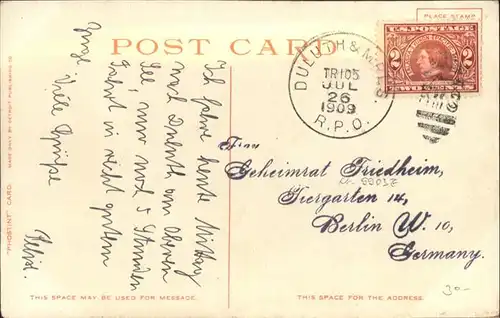 PLACE STAMP
POST CARD
U.S. POSTAGE
2 2
TWO CENTS
DULUTH & MPLS
TR105
JUL
26
1909
R.P.O.
Ich fahre heute Mittag
nach Duluth am Oberen
See, nur noch 5 Stunden
Fahrt in recht gutem
Zuge. Viele Grüße
Frau
Geheimrat Friedheim,
Tiergarten 14,
Berlin W. 10,
Germany.
30-
MADE ONLY BY DETROIT PUBLISHING CO.
"PHOSTINT" CARD.
THIS SPACE MAY BE USED FOR MESSAGE.
THIS SPACE IS FOR THE ADDRESS.